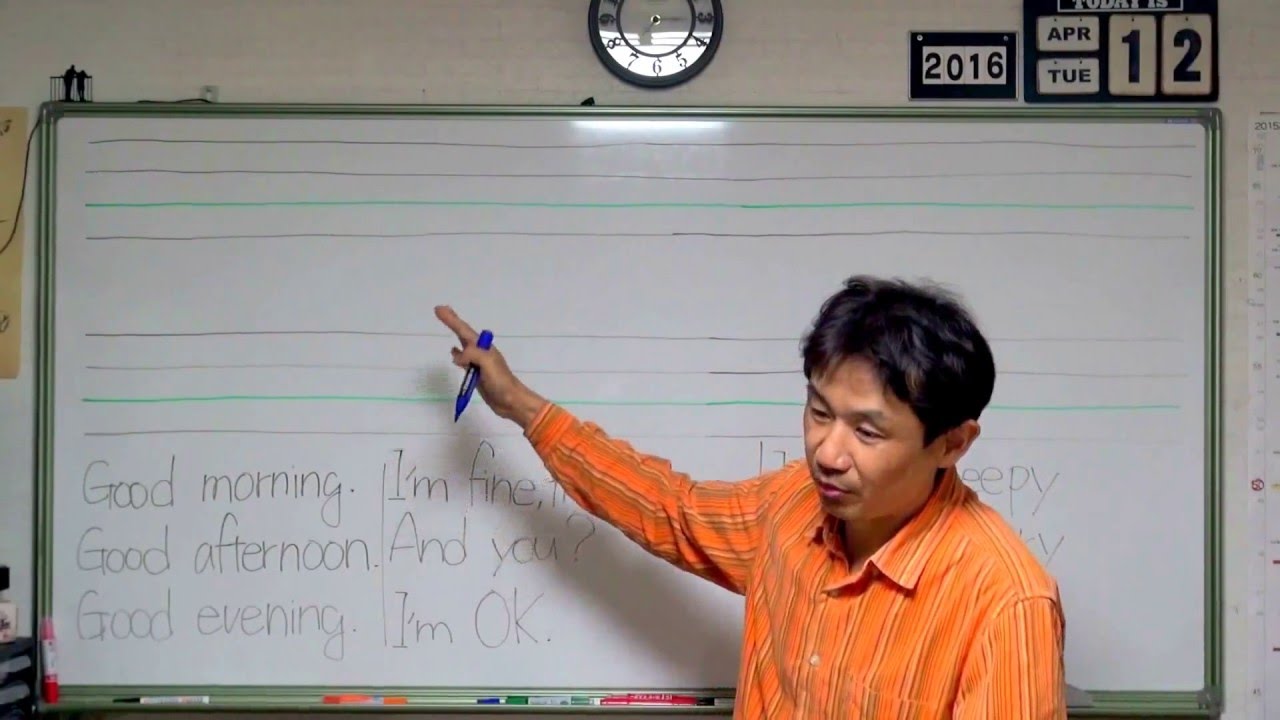 TODAY IS
2016
APR
TUE
12
2015
7 6 5
Good morning.
Good afternoon.
Good evening.
I'm fine,
And you?
I'm OK.